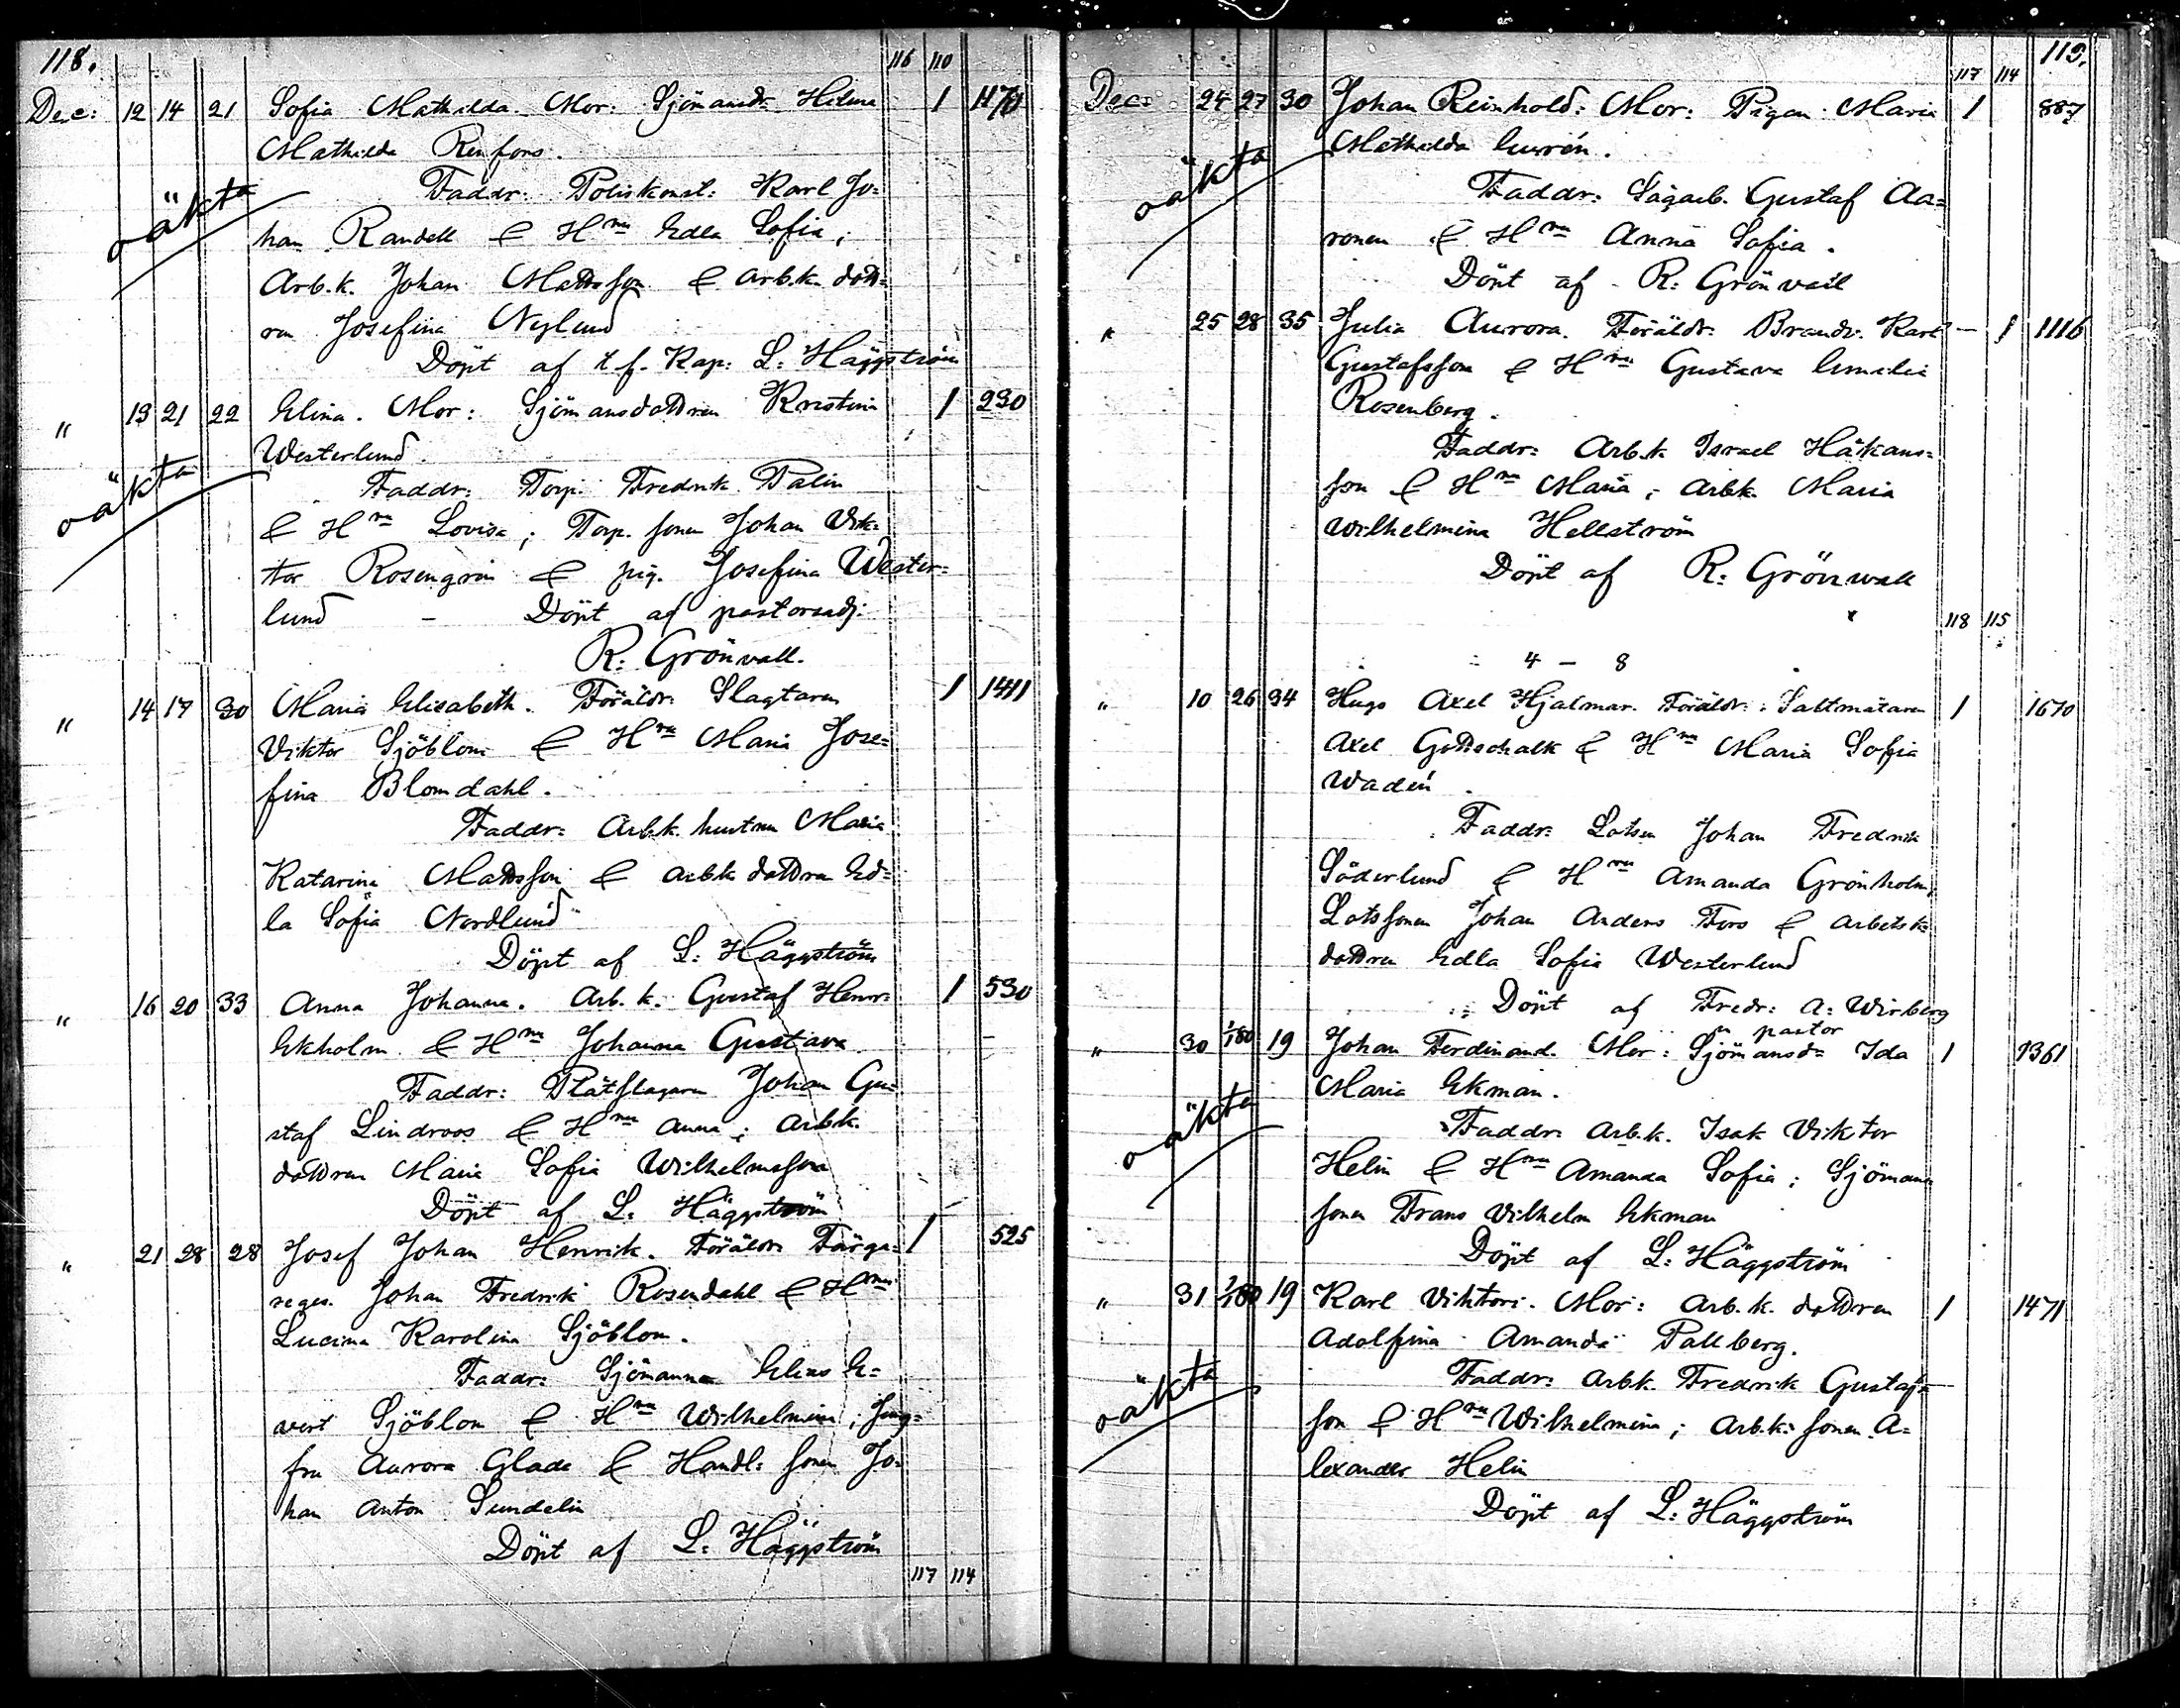 118.
116 110
Dec: 12 14 21 Sofia Mathilda. Mor: Sjömansdr Hilma 1 1170
Mathilda Renfors.
oäkta
Faddr: Poliskonst: Karl Jo=
han Randell & Hru Edla Sofia;
Arb.k. Johan Mattsson & arb.k. dott=
ren Josefina Nylund
Döpt af t.f. Kap: L: Häggström
" 13 21 22 Elina. Mor: Sjömansdottren Kristina 1 230
Westerlund.
oäkta
Faddr: Torp. Fredrik Palin
& Hru Lovisa; Torp. sonen Johan Vik=
tor Rosengrén & pig. Josefina Wester=
lund – Döpt af pastorsadj:
R: Grönvall.
" 14 17 30 Maria Elisabeth. Föräldr: Slagtaren 1 1411
Viktor Sjöblom & Hru Maria Jose=
fina Blomdahl.
Faddr: Arb.k. hustru Maria
Katarina Mattsson & arb.k. dottren Ed=
la Sofia Nordlund
Döpt af L: Häggström
" 16 20 33 Anna Johanna. Arb.k. Gustaf Henr: 1 530
Ekholm & Hru Johanna Gustava
Faddr: Plåtslagaren Johan Gu=
staf Lindroos & Hru Anna; Arb.k.
dottren Maria Sofia Wilhelmsson
Döpt af L: Häggström
" 21 28 28 Josef Johan Henrik. Föräldr: Färga= 1 525
reges. Johan Fredrik Rosendahl & Hru
Lucina Karolina Sjöblom.
Faddr: Sjömannen Elias E=
vert Sjöblom & Hru Wilhelmina; Jung=
fru Aurora Glade & Handl: sonen Jo=
han Anton Sundelin
Döpt af L: Häggström
117 114
119.
117 114
Dec: 24 27 30 Johan Reinhold: Mor: Pigan Maria 1 887
Mathilda
oäkta
Faddr: Sågarb. Gustaf Aa=
ronen & Hru Anna Sofia.
Döpt af R: Grönvall
" 25 28 35 Julia Aurora. Föräldr: Brandv. Karl — 1 1116
Gustafsson & Hru Gustava Amalia
Rosenberg.
Faddr: Arb.k Israel Håkans=
son & Hru Maria; Arb.k. Maria
Wilhelmina Hellström
Döpt af R: Grönwall
118 115
4 – 8
" 10 26 34 Hugo Axel Hjalmar. Föräldr: Saltmätaren 1 1670
Axel Gottschalk & Hru Maria Sofia
Wadén.
Faddr: Lotsen Johan Fredrik
Söderlund & Hru Amanda Grönholm,
Lotssonen Johan Anders Fors & arbetsk=
dottren Edla Sofia Westerlund
Döpt af Fredr: A: Wirberg
pastor
" 30 1/180 19 Johan Ferdinand. Mor: Sjömansdr Ida 1 1361
Maria Ekman.
oäkta
Faddr: Arb.k. Isak Viktor
Helin & Hru Amanda Sofia; Sjömans
sonen Frans Vilhelm Ekman
Döpt af L: Häggström
" 31 1/180 19 Karl Viktori. Mor: Arb.k. dottren 1 1471
Adolfina Amanda Pallberg.
oäkta
Faddr: Arb.k. Fredrik Gustafs=
son & Hru Wilhelmina; Arb.k: sonen A=
lexander Helin
Döpt af L: Häggström